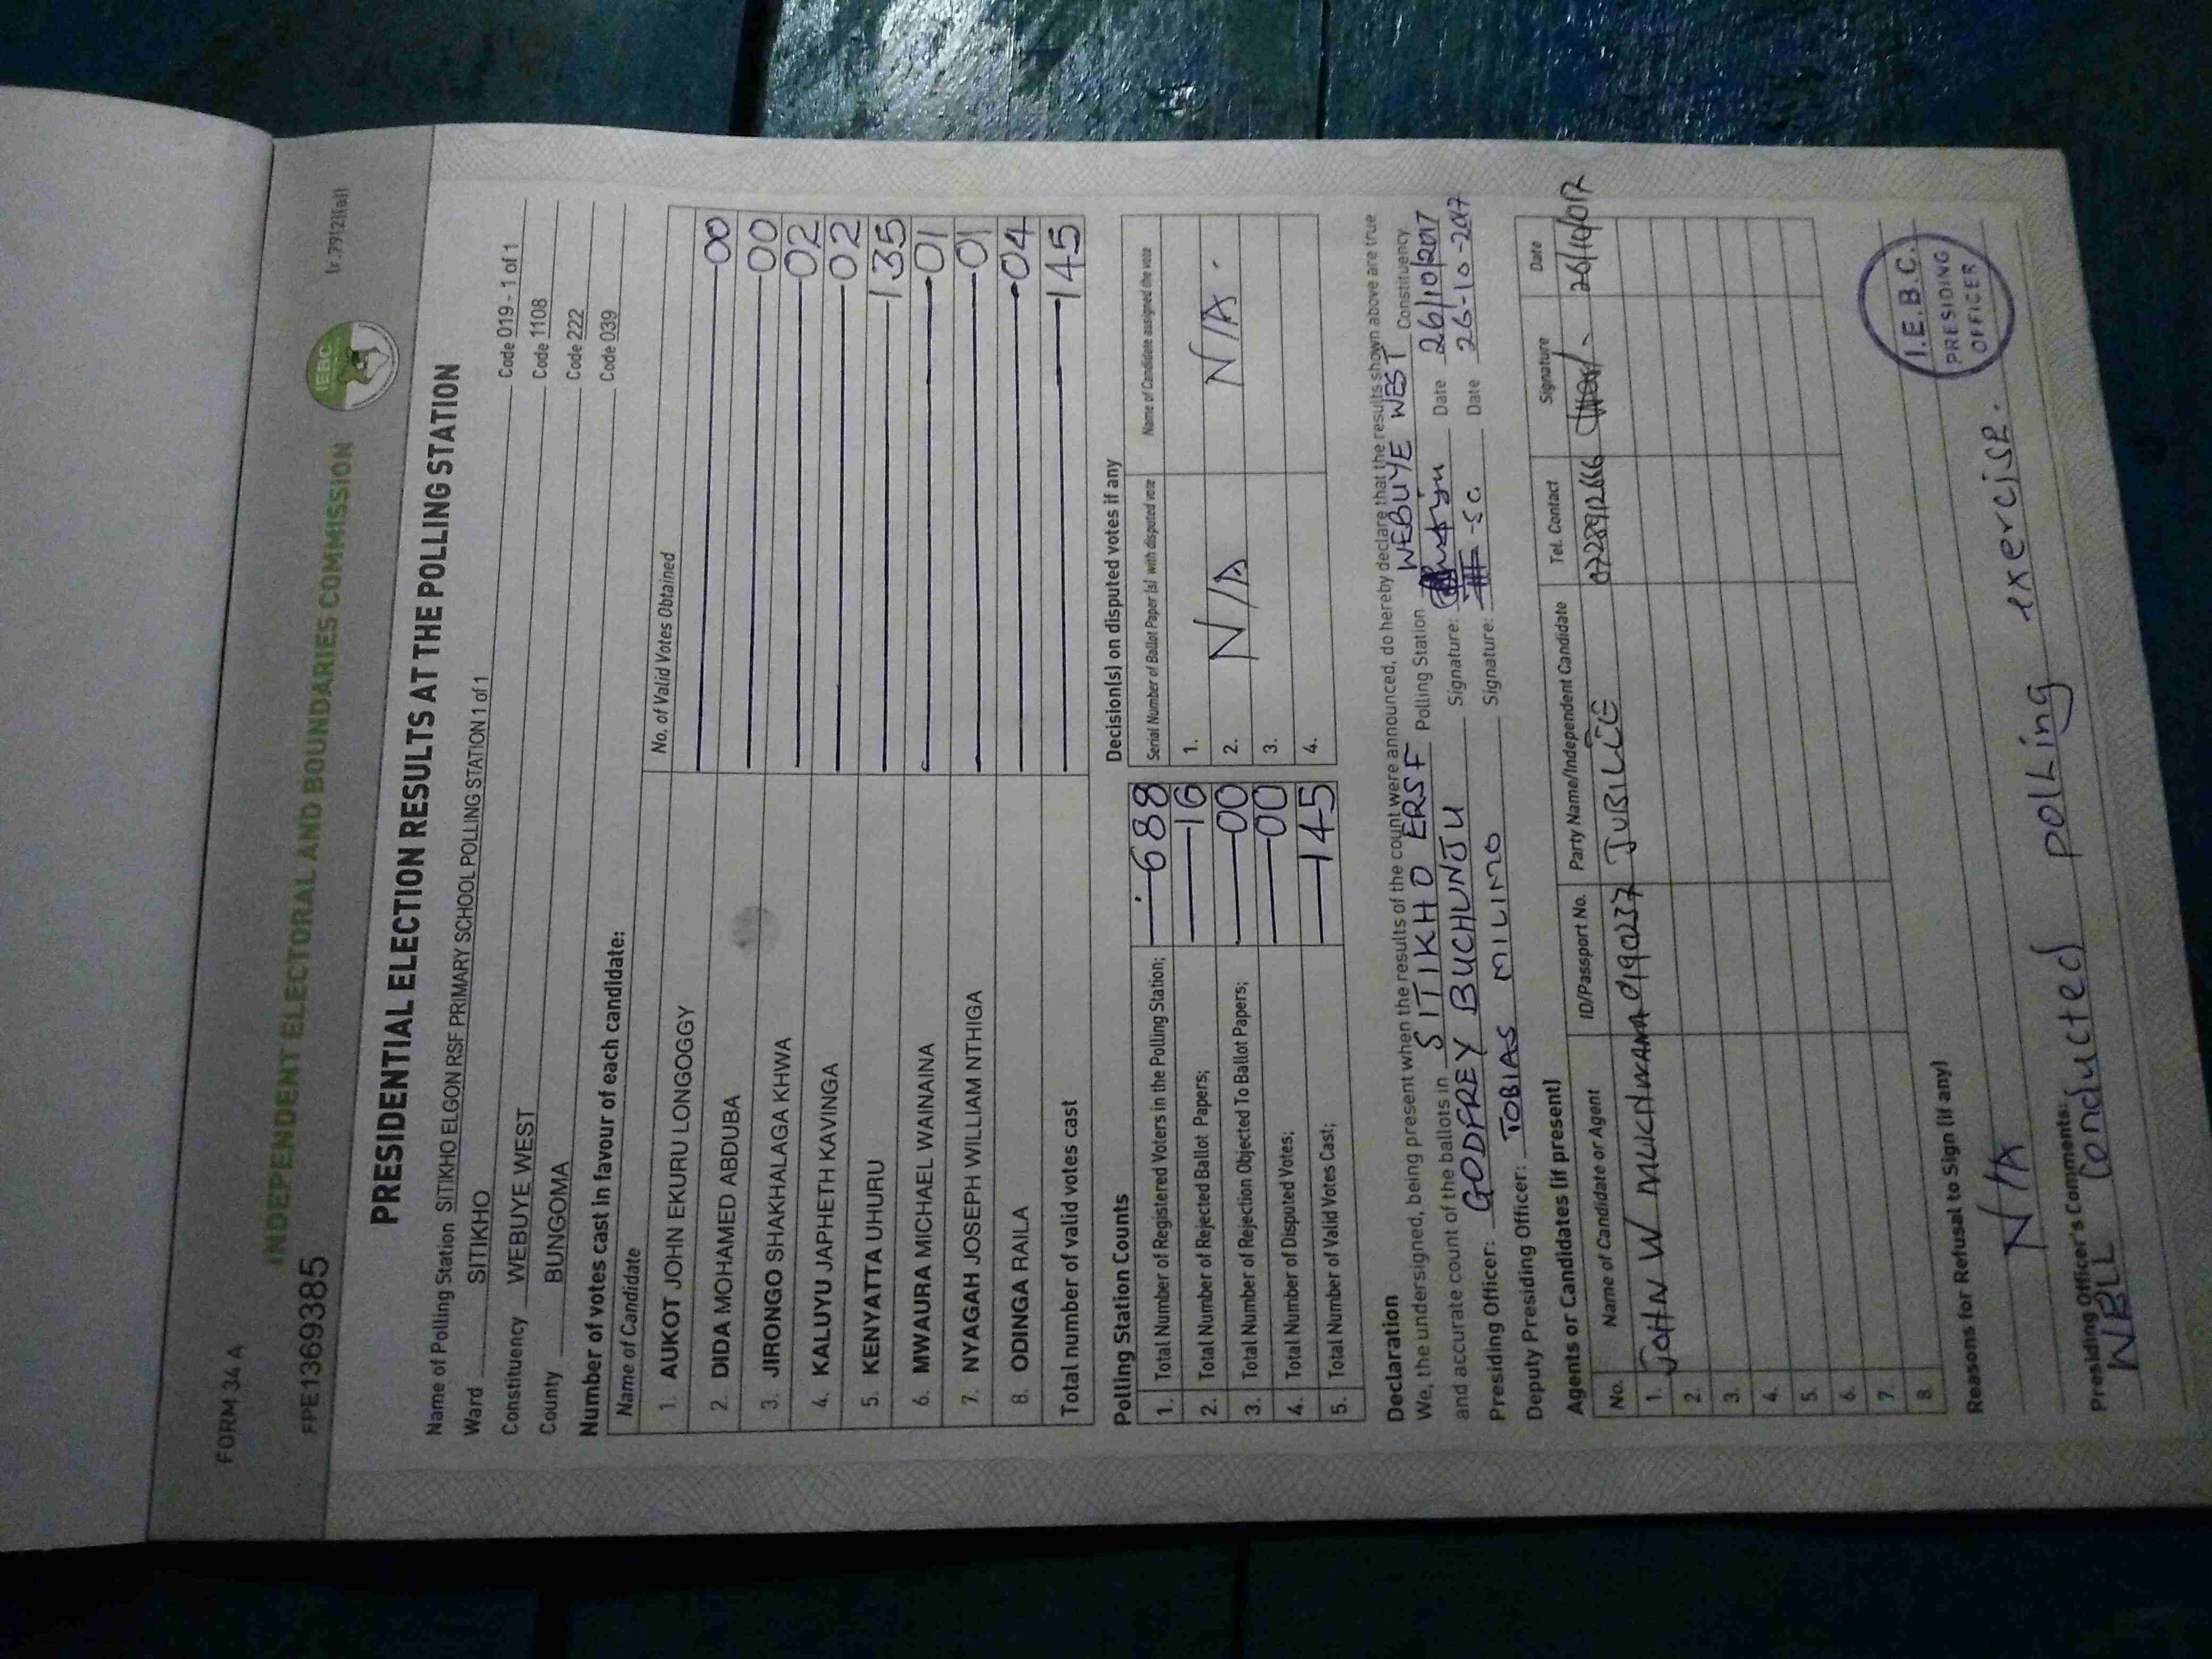 FORM 34 A
FPE1369385
INDEPENDENT ELECTORAL AND BOUNDARIES COMMISSION
IEBC
(r.79(2)(a))
PRESIDENTIAL ELECTION RESULTS AT THE POLLING STATION
Name of Polling Station SITIKHO ELGON RSF PRIMARY SCHOOL POLLING STATION 1 of 1 Code 019 - 1 of 1
Ward SITIKHO Code 1108
Constituency WEBUYE WEST Code 222
County BUNGOMA Code 039
Number of votes cast in favour of each candidate:
Name of Candidate No. of Valid Votes Obtained
1. AUKOT JOHN EKURU LONGOGGY 00
2. DIDA MOHAMED ABDUBA 00
3. JIRONGO SHAKHALAGA KHWA 02
4. KALUYU JAPHETH KAVINGA 02
5. KENYATTA UHURU 135
6. MWAURA MICHAEL WAINAINA 01
7. NYAGAH JOSEPH WILLIAM NTHIGA 01
8. ODINGA RAILA 04
Total number of valid votes cast 145
Polling Station Counts
1. Total Number of Registered Voters in the Polling Station; 688
2. Total Number of Rejected Ballot Papers; 16
3. Total Number of Rejection Objected To Ballot Papers; 00
4. Total Number of Disputed Votes; 00
5. Total Number of Valid Votes Cast; 145
Decision(s) on disputed votes if any
Serial Number of Ballot Paper (s) with disputed vote Name of Candidate assigned the vote
1.
2. N/A N/A
3.
4.
Declaration
We, the undersigned, being present when the results of the count were announced, do hereby declare that the results shown above are true
and accurate count of the ballots in SITIKHO ERSF Polling Station WEBUYE WEST Constituency.
Presiding Officer: GODFREY BUCHUNJU Signature: Date 26/10/2017
Deputy Presiding Officer: TOBIAS MILIMO Signature: Date 26-10-2017
Agents or Candidates (if present)
No. Name of Candidate or Agent ID/Passport No. Party Name/Independent Candidate Tel. Contact Signature Date
1. JOHN W JUBILEE 26/10/017
2.
3.
4.
5.
6.
7.
8.
Reasons for Refusal to Sign (if any)
N/A
Presiding Officer's Comments:
WELL Conducted polling exercise.
I.E.B.C.
PRESIDING
OFFICER